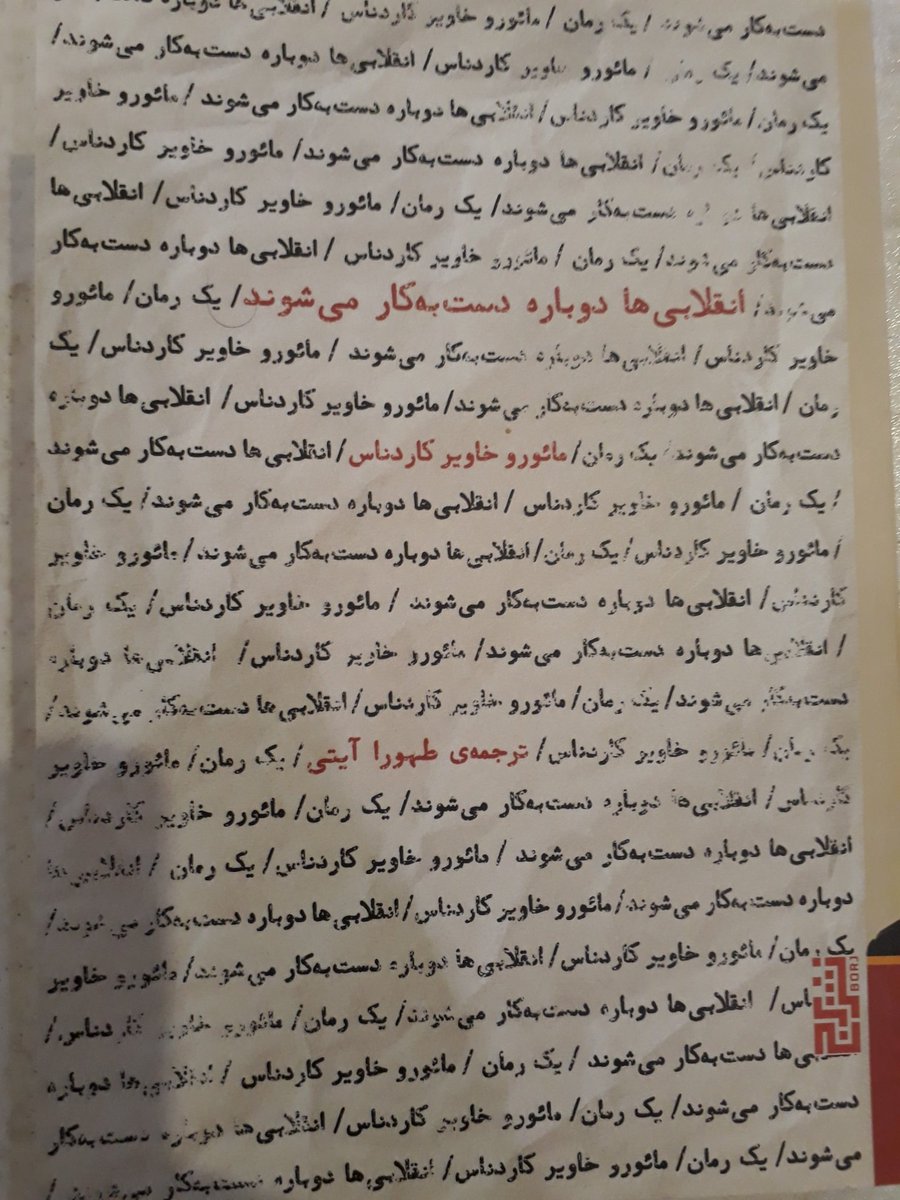 دست‌به‌کار می‌شوند / یک رمان / مائورو خاویر کاردناس / انقلابی‌ها دوباره دست‌
می‌شوند/ یک رمان / مائورو خاویر کاردناس/ انقلابی‌ها دوباره دست‌به‌کار می‌شوند/
یک رمان/ مائورو خاویر کاردناس/ انقلابی‌ها دوباره دست‌به‌کار می‌شوند /مائورو خاویر
کاردناس/ یک رمان/ انقلابی‌ها دوباره دست‌به‌کار می‌شوند/ مائورو خاویر کاردناس/
انقلابی‌ها دوباره دست‌به‌کار می‌شوند/ یک رمان/ مائورو خاویر کاردناس/ انقلابی‌ها
دست‌به‌کار می‌شوند/ یک رمان / مائورو خاویر کاردناس / انقلابی‌ها دوباره دست‌به‌کار
می‌شوند/ انقلابی‌ها دوباره دست‌به‌کار می‌شوند/ یک رمان/ مائورو
خاویر کاردناس/ انقلابی‌ها دوباره دست‌به‌کار می‌شوند / مائورو خاویر کاردناس/ یک
رمان / انقلابی‌ها دوباره دست‌به‌کار می‌شوند/ مائورو خاویر کاردناس/ انقلابی‌ها دوباره
دست‌به‌کار می‌شوند/ یک رمان/ مائورو خاویر کاردناس/ انقلابی‌ها دست‌به‌کار می‌شوند
/ یک رمان / مائورو خاویر کاردناس / انقلابی‌ها دوباره دست‌به‌کار می‌شوند/ یک رمان
/ مائورو خاویر کاردناس/ یک رمان/ انقلابی‌ها دوباره دست‌به‌کار می‌شوند/ مائورو خاویر
کاردناس/ انقلابی‌ها دوباره دست‌به‌کار می‌شوند / مائورو خاویر کاردناس/ یک رمان
/ انقلابی‌ها دوباره دست‌به‌کار می‌شوند/ مائورو خاویر کاردناس/ انقلابی‌ها دوباره
دست‌به‌کار می‌شوند/ یک رمان/ مائورو خاویر کاردناس/ انقلابی‌ها دست‌به‌کار می‌شوند/
یک رمان/ مائورو خاویر کاردناس/ ترجمه‌ی طهورا آیتی/ یک رمان/ مائورو خاویر
کاردناس/ انقلابی‌ها دوباره دست‌به‌کار می‌شوند/ یک رمان/ مائورو خاویر کاردناس/
انقلابی‌ها دوباره دست‌به‌کار می‌شوند / مائورو خاویر کاردناس/ یک رمان / انقلابی‌ها
دوباره دست‌به‌کار می‌شوند/ مائورو خاویر کاردناس/ انقلابی‌ها دوباره دست‌به‌کار می‌شوند/
یک رمان/ مائورو خاویر کاردناس/ انقلابی‌ها دوباره دست‌به‌کار می‌شوند/ مائورو خاویر
انقلابی‌ها دوباره دست‌به‌کار می‌شوند/ یک رمان/ مائورو خاویر کاردناس/
دست‌به‌کار می‌شوند / یک رمان / مائورو خاویر کاردناس / انقلابی‌ها دوباره
دست‌به‌کار می‌شوند/ یک رمان/ مائورو خاویر کاردناس/ انقلابی‌ها دوباره دست‌به‌کار
می‌شوند/ یک رمان/ مائورو خاویر کاردناس/ انقلابی‌ها دوباره دست‌به‌کار می‌شوند /
برج BORJ